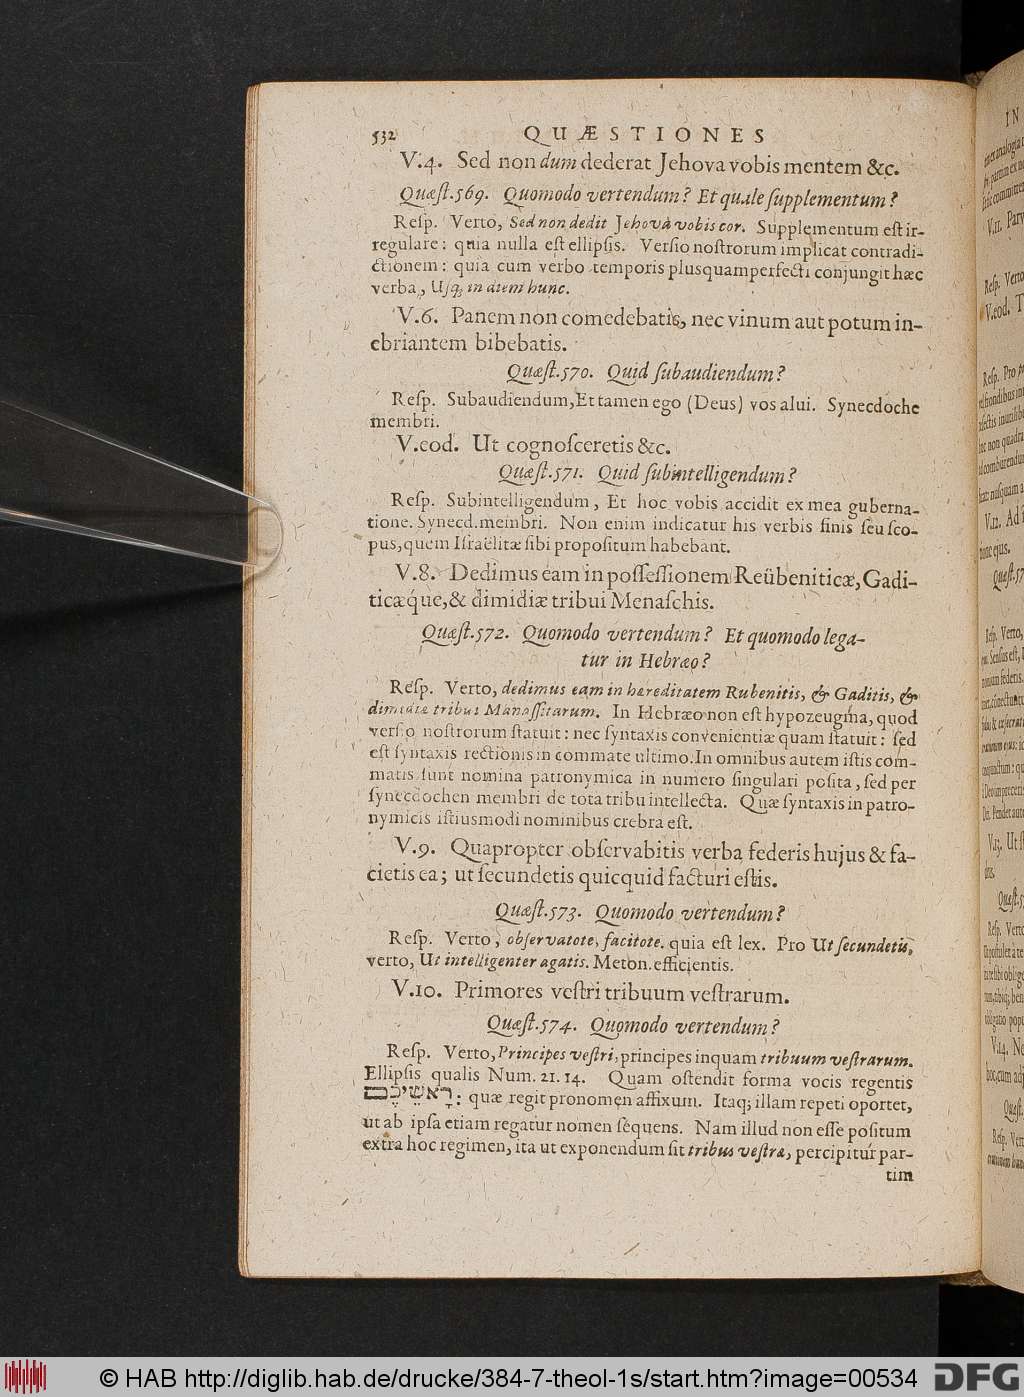 532 QUÆSTIONES
V.4. Sed non dum dederat Jehova vobis mentem &c.
Quæſt.569. Quomodo vertendum? Et quale ſupplementum?
Reſp. Verto, Sed non dedit Jehova vobis cor. Supplementum eſt ir-
regulare: quia nulla eſt ellipſis. Verſio noſtrorum implicat contradi-
ctionem: quia cum verbo temporis plusquamperfecti conjungit hæc
verba, Uſq; in diem hunc.
V.6. Panem non comedebatis, nec vinum aut potum in-
ebriantem bibebatis.
Quæſt.570. Quid ſubaudiendum?
Reſp. Subaudiendum, Et tamen ego (Deus) vos alui. Synecdoche
membri.
V.eod. Ut cognoſceretis &c.
Quæſt.571. Quid ſubintelligendum?
Reſp. Subintelligendum, Et hoc vobis accidit ex mea guberna-
tione. Synecd. membri. Non enim indicatur his verbis finis ſeu ſco-
pus, quem Iſraëlitæ ſibi propoſitum habebant.
V.8. Dedimus eam in poſſeſſionem Reübeniticæ, Gadi-
ticæque, & dimidiæ tribui Menaſchis.
Quæſt.572. Quomodo vertendum? Et quomodo lega-
tur in Hebræo?
Reſp. Verto, dedimus eam in hæreditatem Rubenitis, & Gaditis, &
dimidiæ tribui Manaſſitarum. In Hebræo non eſt hypozeugma, quod
verſio noſtrorum ſtatuit: nec ſyntaxis convenientiæ quam ſtatuit: ſed
eſt ſyntaxis rectionis in commate ultimo. In omnibus autem iſtis com-
matis ſunt nomina patronymica in numero ſingulari poſita, ſed per
ſynecdochen membri de tota tribu intellecta. Quæ ſyntaxis in patro-
nymicis iſtiusmodi nominibus crebra eſt.
V.9. Quapropter obſervabitis verba federis hujus & fa-
cietis ea; ut ſecundetis quicquid facturi eſtis.
Quæſt.573. Quomodo vertendum?
Reſp. Verto, obſervatote, facitote. quia eſt lex. Pro Ut ſecundetis,
verto, Ut intelligenter agatis. Meton. efficientis.
V.10. Primores veſtri tribuum veſtrarum.
Quæſt.574. Quomodo vertendum?
Reſp. Verto, Principes veſtri, principes inquam tribuum veſtrarum.
Ellipſis qualis Num. 21. 14. Quam oſtendit forma vocis regentis
רָאשֵׁיכֶם: quæ regit pronomen affixum. Itaq; illam repeti oportet,
ut ab ipſa etiam regatur nomen ſequens. Nam illud non eſſe poſitum
extra hoc regimen, ita ut exponendum ſit tribus veſtræ, percipitur par-
tim
© HAB http://diglib.hab.de/drucke/384-7-theol-1s/start.htm?image=00534
DFG